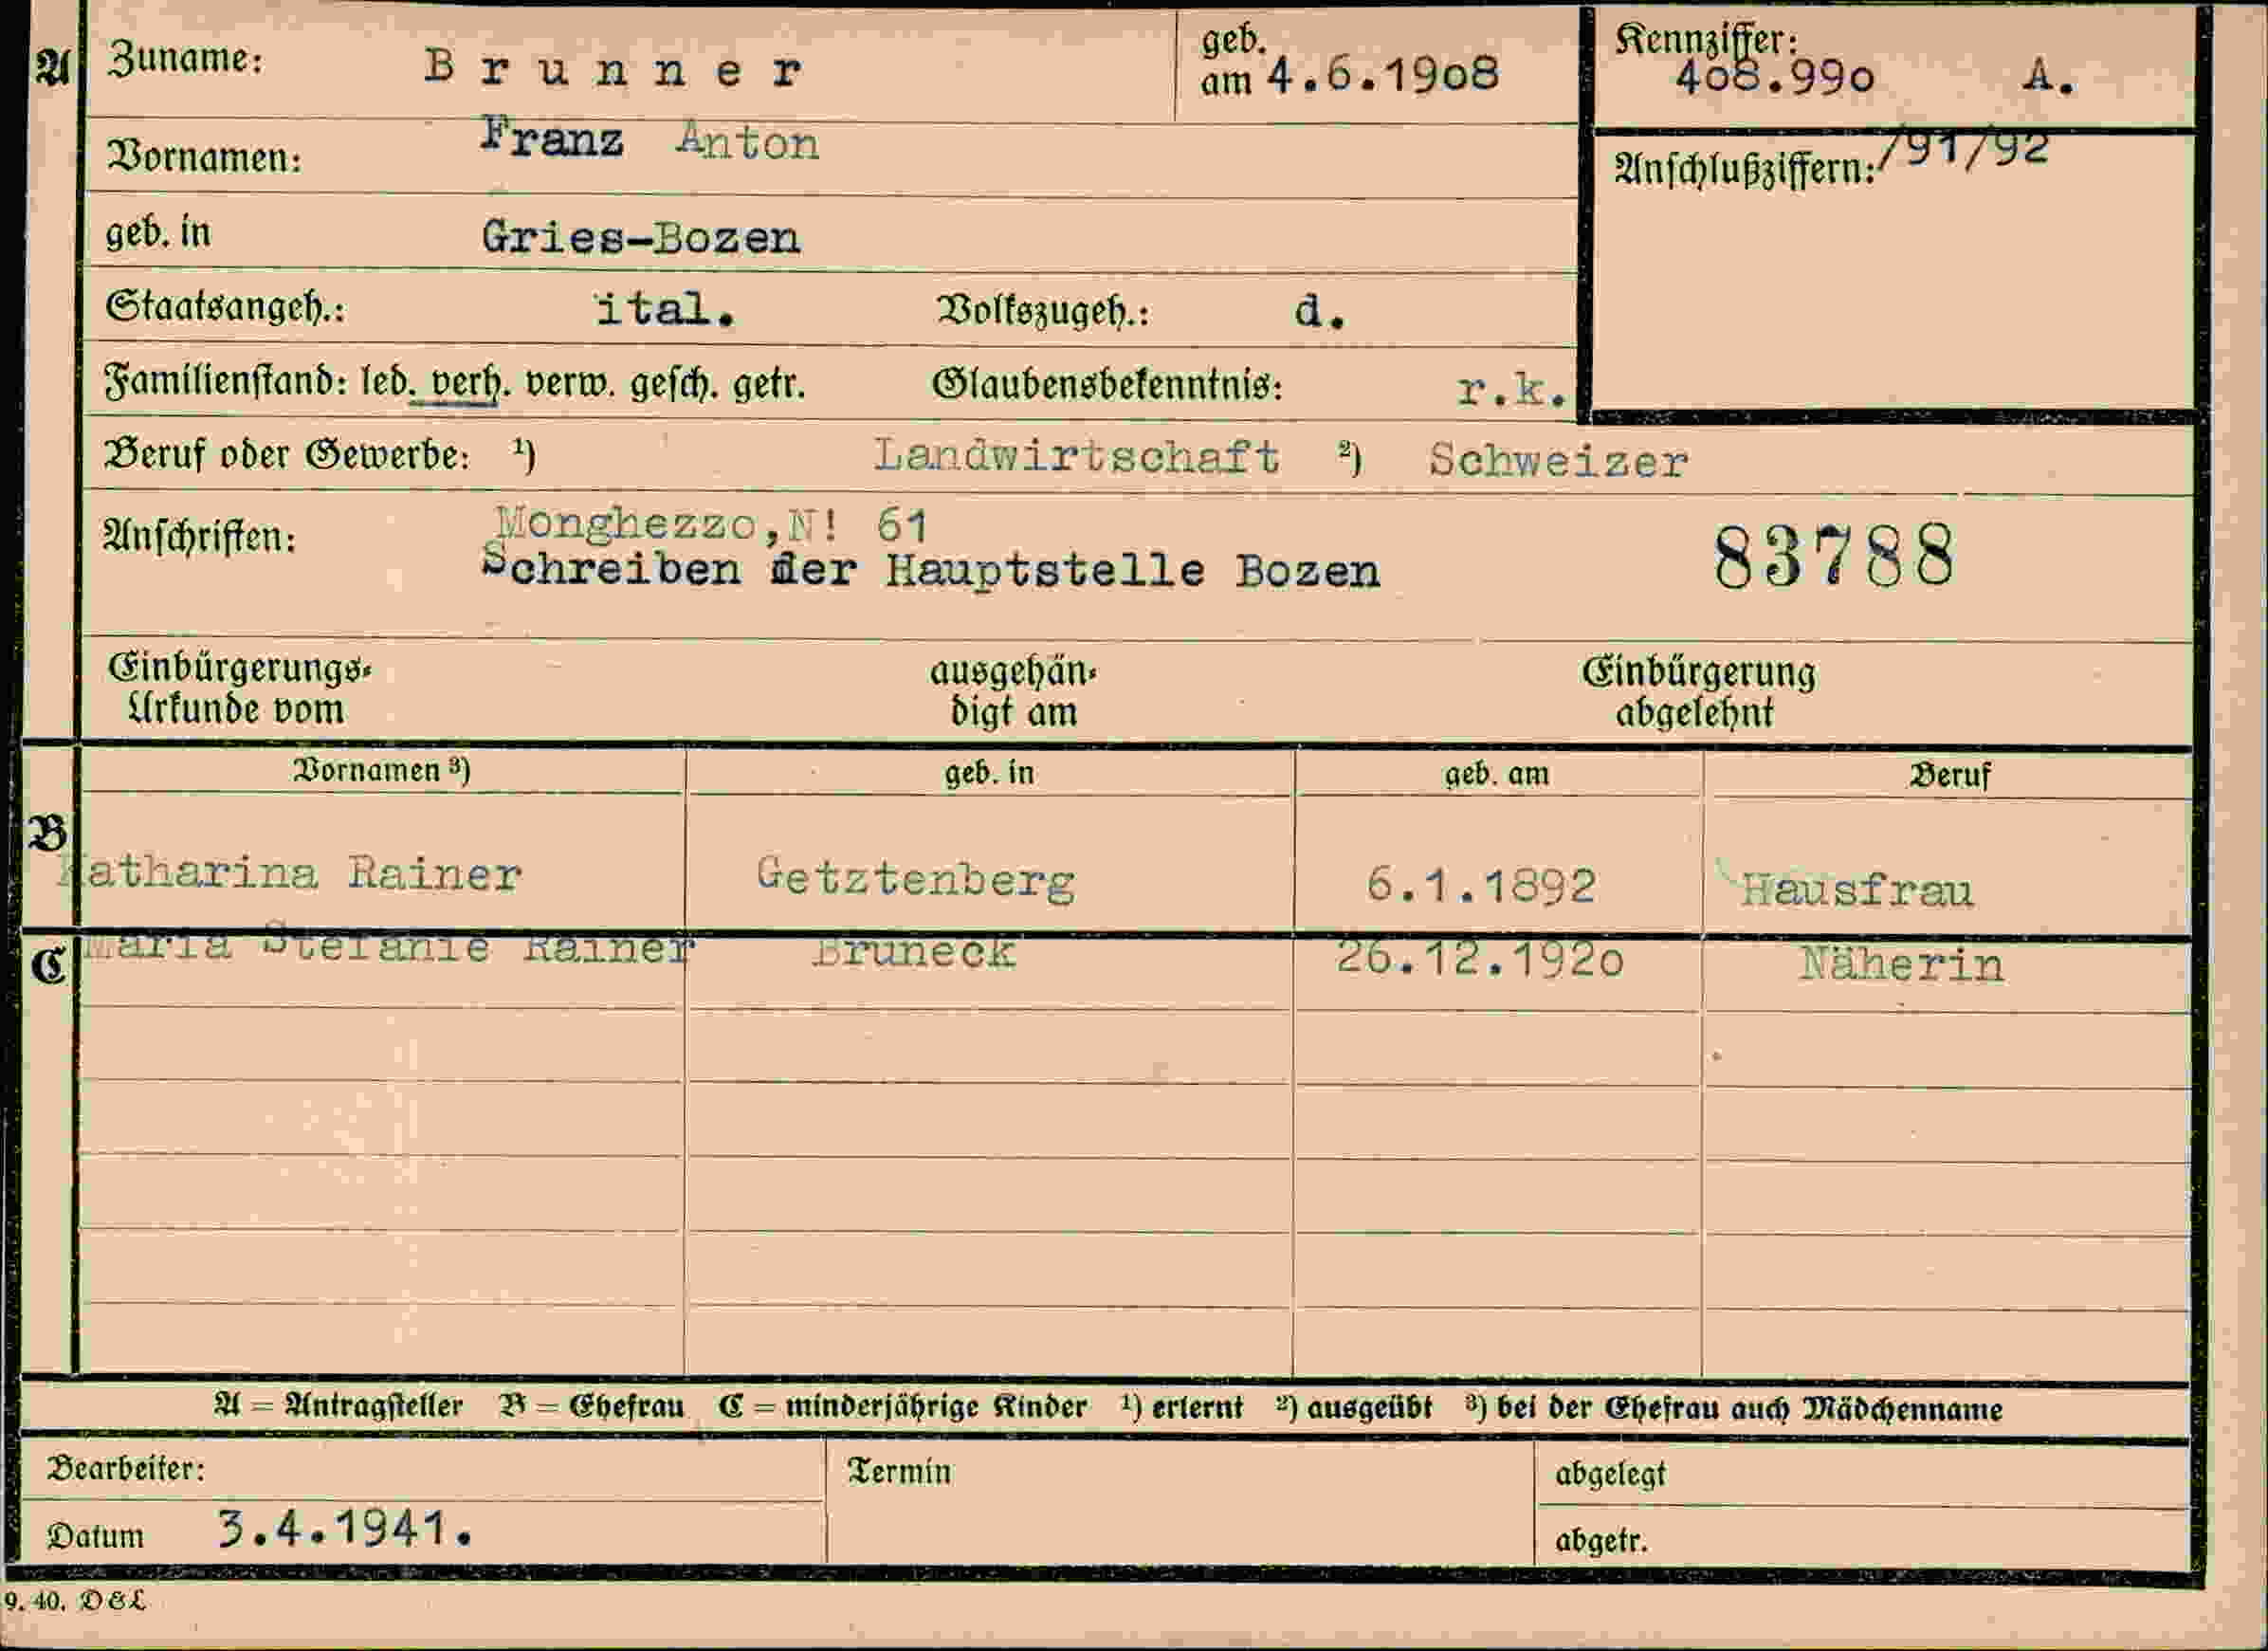 A Zuname: Brunner geb. am 4.6.1908 Kennziffer: 408.990 A.
Vornamen: Franz Anton Anschlußziffern: /91/92
geb. in Gries-Bozen
Staatsangeh.: ital. Volkszugeh.: d.
Familienstand: led. verh. verw. gesch. getr. Glaubensbekenntnis: r.k.
Beruf oder Gewerbe: ¹) Landwirtschaft ²) Schweizer
Anschriften: Monghezzo,N! 61
Schreiben der Hauptstelle Bozen 83788
Einbürgerungs- ausgehän- Einbürgerung
Urkunde vom digt am abgelehnt
Vornamen ³) geb. in geb. am Beruf
B
Katharina Rainer Getztenberg 6.1.1892 Hausfrau
C Maria Stefanie Rainer Bruneck 26.12.1920 Näherin
A = Antragsteller B = Ehefrau C = minderjährige Kinder ¹) erlernt ²) ausgeübt ³) bei der Ehefrau auch Mädchenname
Bearbeiter: Termin abgelegt
Datum 3.4.1941. abgetr.
9. 40. D&L